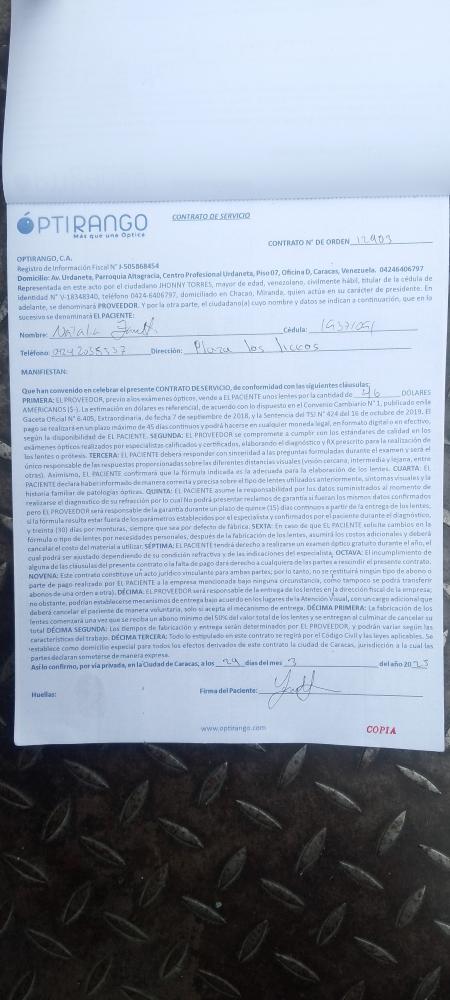 ÓPTIRANGO
Más que una Óptica
CONTRATO DE SERVICIO
CONTRATO N° DE ORDEN 12903
OPTIRANGO, C.A.
Registro de Información Fiscal N° J-505868454
Domicilio: Av. Urdaneta, Parroquia Altagracia, Centro Profesional Urdaneta, Piso 07, Oficina D, Caracas, Venezuela. 04246406797
Representada en este acto por el ciudadano JHONNY TORRES, mayor de edad, venezolano, civilmente hábil, titular de la cédula de
identidad N° V-18348340, teléfono 0424-6406797, domiciliado en Chacao, Miranda, quien actúa en su carácter de presidente. En
adelante, se denominará PROVEEDOR. Y por la otra parte, el ciudadano(a) cuyo nombre y datos se indican a continuación, que en lo
sucesivo se denominará EL PACIENTE:
Nombre: Cédula:
Teléfono: Dirección: Plaza los
MANIFIESTAN:
Que han convenido en celebrar el presente CONTRATO DE SERVICIO, de conformidad con las siguientes cláusulas:
PRIMERA: EL PROVEEDOR, previo a los exámenes ópticos, vende a EL PACIENTE unos lentes por la cantidad de 46 DÓLARES
AMERICANOS ($-). La estimación en dólares es referencial, de acuerdo con lo dispuesto en el Convenio Cambiario N° 1, publicado en la
Gaceta Oficial N° 6.405, Extraordinaria, de fecha 7 de septiembre de 2018, y la Sentencia del TSJ N° 424 del 16 de octubre de 2019. El
pago se realizará en un plazo máximo de 45 días continuos y podrá hacerse en cualquier moneda legal, en formato digital o en efectivo,
según la disponibilidad de EL PACIENTE. SEGUNDA: EL PROVEEDOR se compromete a cumplir con los estándares de calidad en los
exámenes ópticos realizados por especialistas calificados y certificados, elaborando el diagnóstico y RX prescrito para la realización de
los lentes o prótesis. TERCERA: EL PACIENTE deberá responder con sinceridad a las preguntas formuladas durante el examen y será el
único responsable de las respuestas proporcionadas sobre las diferentes distancias visuales (visión cercana, intermedia y lejana, entre
otras). Asimismo, EL PACIENTE confirmará que la fórmula indicada es la adecuada para la elaboración de los lentes. CUARTA: EL
PACIENTE declara haber informado de manera correcta y precisa sobre el tipo de lentes utilizados anteriormente, síntomas visuales y la
historia familiar de patologías ópticas. QUINTA: EL PACIENTE asume la responsabilidad por los datos suministrados al momento de
realizarse el diagnóstico de su refracción por lo cual No podrá presentar reclamos de garantía si fueran los mismos datos confirmados
pero EL PROVEEDOR será responsable de la garantía durante un plazo de quince (15) días continuos a partir de la entrega de los lentes,
si la fórmula resulta estar fuera de los parámetros establecidos por el especialista y confirmados por el paciente durante el diagnóstico,
y treinta (30) días por monturas, siempre que sea por defecto de fábrica. SEXTA: En caso de que EL PACIENTE solicite cambios en la
fórmula o tipo de lentes por necesidades personales, después de la fabricación de los lentes, asumirá los costos adicionales y deberá
cancelar el costo del material a utilizar. SÉPTIMA: EL PACIENTE tendrá derecho a realizarse un examen óptico gratuito durante el año, el
cual podrá ser ajustado dependiendo de su condición refractiva y de las indicaciones del especialista. OCTAVA: El incumplimiento de
alguna de las cláusulas del presente contrato o la falta de pago dará derecho a cualquiera de las partes a rescindir el presente contrato.
NOVENA: Este contrato constituye un acto jurídico vinculante para ambas partes; por lo tanto, no se restituirá ningún tipo de abono o
parte de pago realizado por EL PACIENTE a la empresa mencionada bajo ninguna circunstancia, como tampoco se podrá transferir
abonos de una orden a otra). DÉCIMA: EL PROVEEDOR será responsable de la entrega de los lentes en la dirección fiscal de la empresa;
no obstante, podrían establecerse mecanismos de entrega bajo acuerdo en los lugares de la Atención Visual, con un cargo adicional que
deberá cancelar el paciente de manera voluntaria, solo si acepta el mecanismo de entrega. DÉCIMA PRIMERA: La fabricación de los
lentes comenzará una vez que se reciba un abono mínimo del 50% del valor total de los lentes y se entregan al culminar de cancelar su
total DÉCIMA SEGUNDA: Los tiempos de fabricación y entrega serán determinados por EL PROVEEDOR, y podrán variar según las
características del trabajo. DÉCIMA TERCERA: Todo lo estipulado en este contrato se regirá por el Código Civil y las leyes aplicables. Se
establece como domicilio especial para todos los efectos derivados de este contrato la ciudad de Caracas, jurisdicción a la cual las
partes declaran someterse de manera expresa.
Así lo confirmo, por vía privada, en la Ciudad de Caracas, a los 29 días del mes 3 del año 2025
Huellas: Firma del Paciente:
www.optirango.com
COPIA